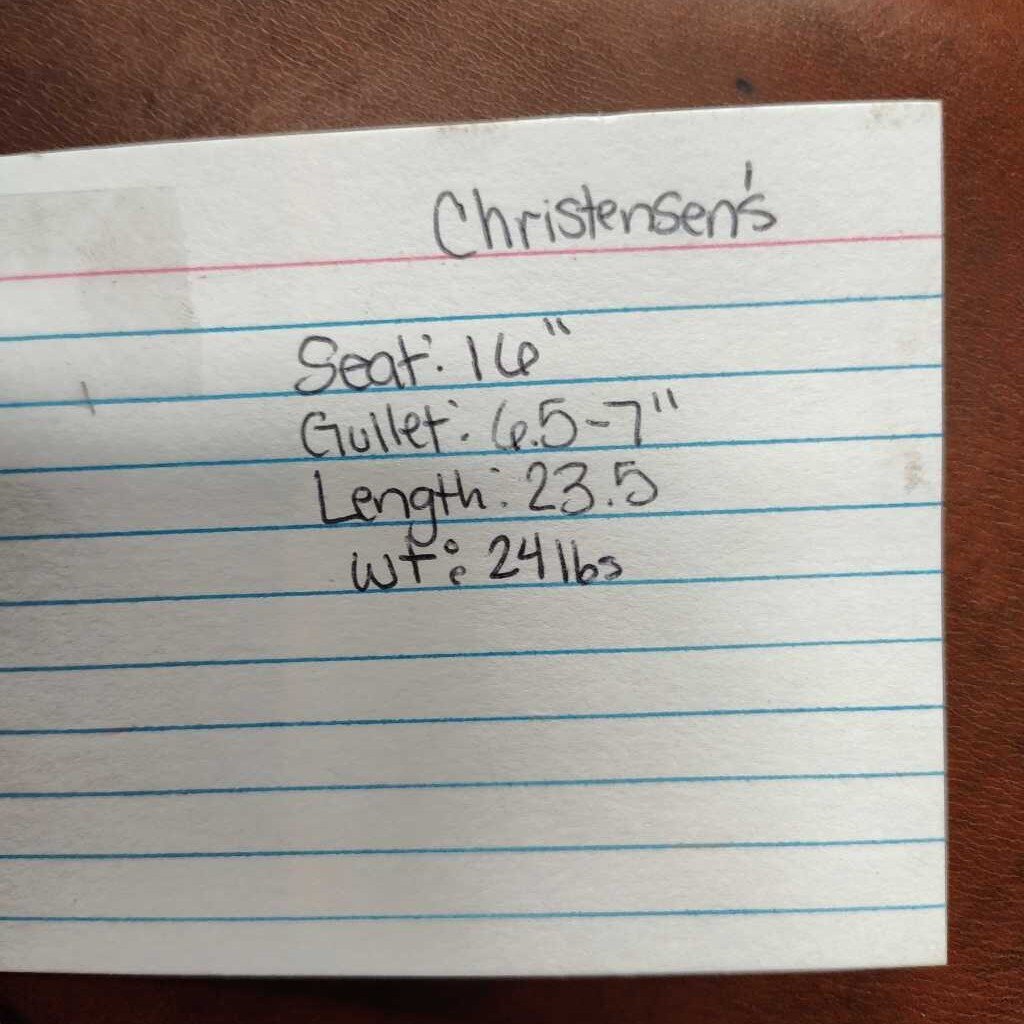 Christensen's
Seat: 16"
Gullet: 6.5-7"
Length: 23.5
Wt: 24 lbs